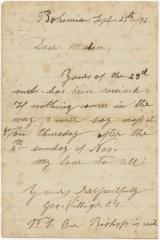 Bohemia Sept. 25th/96.
Dear Madam,
Yours of the 23d
inst. has been received.
If nothing comes in the
way, I will say mass at
on Thursday after the
4th Sunday of Nov.
My love to all!
Yours respectfully
Geo. Villiger S.J.
P.S. Our Bishop is